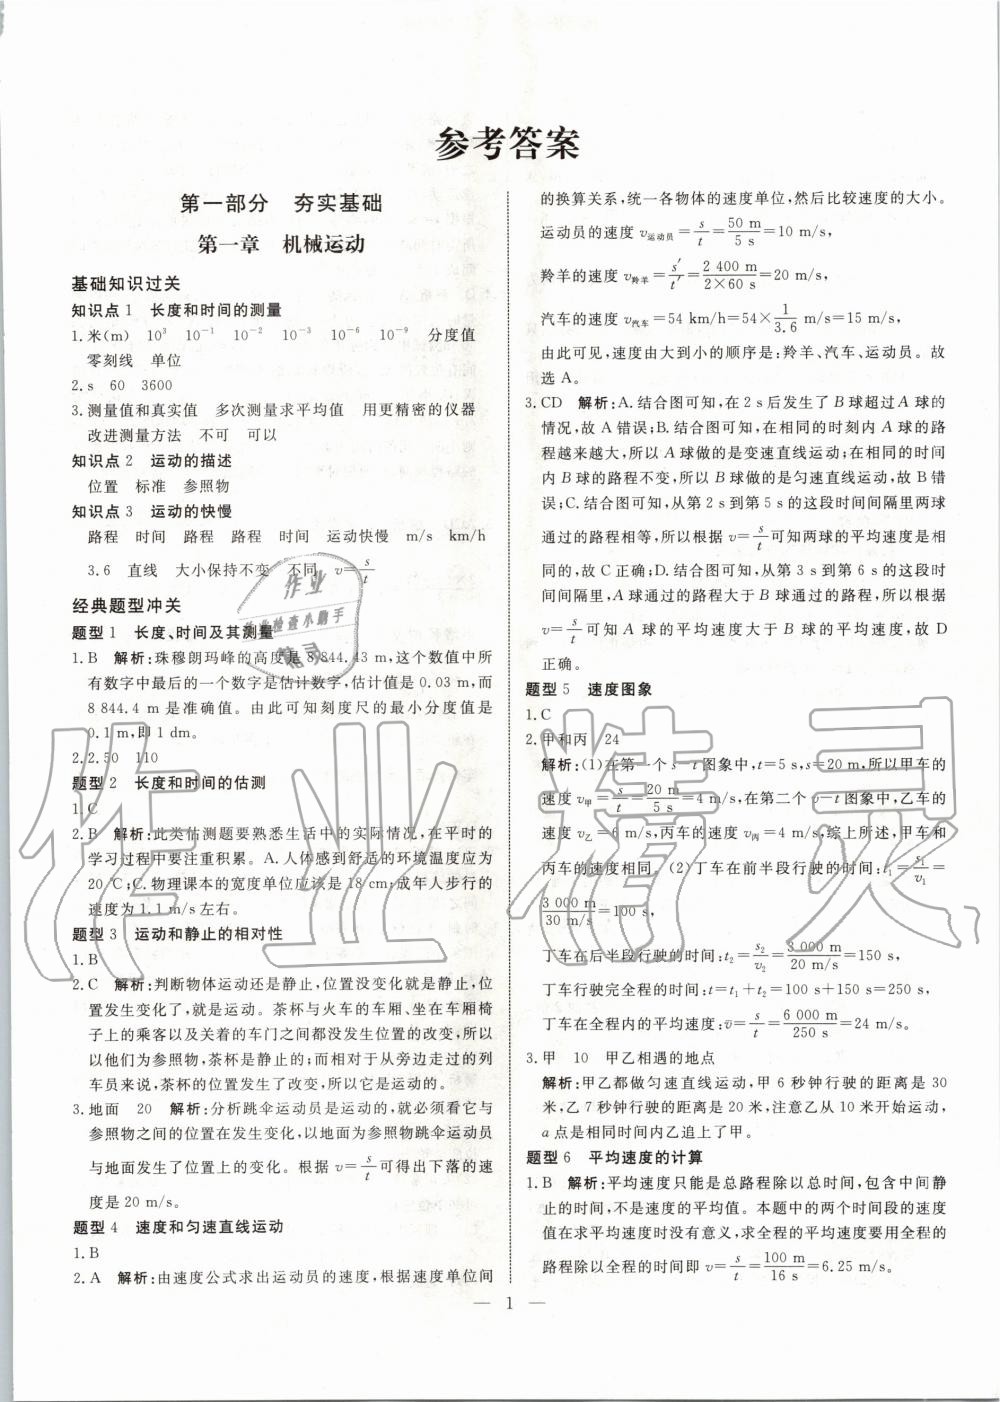 参考答案
第一部分 夯实基础
第一章 机械运动
基础知识过关
知识点1 长度和时间的测量
1.米(m) 10³ 10⁻¹ 10⁻² 10⁻³ 10⁻⁶ 10⁻⁹ 分度值
零刻线 单位
2.s 60 3600
3.测量值和真实值 多次测量求平均值 用更精密的仪器
改进测量方法 不可 可以
知识点2 运动的描述
位置 标准 参照物
知识点3 运动的快慢
路程 时间 路程 路程 时间 运动快慢 m/s km/h
3.6 直线 大小保持不变 不同 v=s/t
经典题型冲关
题型1 长度、时间及其测量
1.B 解析:珠穆朗玛峰的高度是8 844.43 m,这个数值中所
有数字中最后的一个数字是估计数字,估计值是0.03 m,而
8 844.4 m是准确值。由此可知刻度尺的最小分度值是
0.1 m,即1 dm。
2.2.50 110
题型2 长度和时间的估测
1.C
2.B 解析:此类估测题要熟悉生活中的实际情况,在平时的
学习过程中要注重积累。A.人体感到舒适的环境温度应为
20 ℃;C.物理课本的宽度单位应该是18 cm;成年人步行的
速度为1.1 m/s左右。
题型3 运动和静止的相对性
1.B
2.C 解析:判断物体运动还是静止,位置没变化就是静止,位
置发生变化了,就是运动。茶杯与火车的车厢、坐在车厢椅
子上的乘客以及关着的车门之间都没发生位置的改变,所以
以他们为参照物,茶杯是静止的;相对于从旁边走过的列
车员来说,茶杯的位置发生了变化,所以是运动的。
3.地面 20 解析:分析跳伞运动员是运动的,就必须看它与
参照物之间的位置在发生变化,以地面为参照物跳伞运动员
与地面发生了位置上的变化。根据v=s/t可得出下落的速
度是20 m/s。
题型4 速度和匀速直线运动
1.B
2.A 解析:由速度公式求出运动员的速度,根据速度单位间
的换算关系,统一各物体的速度单位,然后比较速度的大小。
运动员的速度v运动员=s/t=50 m/5 s=10 m/s,
羚羊的速度v羚羊=s′/t′=2 400 m/2×60 s=20 m/s,
汽车的速度v汽车=54 km/h=54×1/3.6 m/s=15 m/s,
由此可见,速度由大到小的顺序是:羚羊、汽车、运动员。故
选A。
3.CD 解析:A.结合图可知,在2 s后发生了B球超过A球的
情况,故A错误;B.结合图可知,在相同的时刻内A球的路
程越来越大,所以A球做的是变速直线运动;在相同的时间
内B球的路程不变,所以B球做的是匀速直线运动,故B错
误;C.结合图可知,从第2 s到第5 s的这段时间间隔里两球
通过的路程相等,所以根据v=s/t可知两球的平均速度是相
同的,故C正确;D.结合图可知,从第3 s到第6 s的这段时
间间隔里,A球通过的路程大于B球的路程,所以根据
v=s/t可知A球的平均速度大于B球的平均速度,故D
正确。
题型5 速度图象
1.C
2.甲和丙 24
解析:(1)在第一个s-t图象中,t=5 s,s=20 m,所以甲车的
速度v甲=s/t=20 m/5 s=4 m/s,在第二个v-t图象中,乙车的
速度v乙=6 m/s,丙车的速度v丙=4 m/s,综上所述,甲车和
丙车的速度相同。(2)丁车在前半段行驶的时间:t₁=s₁/v₁=
3 000 m/30 m/s=100 s,
丁车在后半段行驶的时间:t₂=s₂/v₂=3 000 m/20 m/s=150 s,
丁车行驶完全程的时间:t=t₁+t₂=100 s+150 s=250 s,
丁车在全程内的平均速度:v̄=s/t=6 000 m/250 s=24 m/s。
3.甲 10 甲乙相遇的地点
解析:甲乙都做匀速直线运动,甲6秒钟行驶的距离是30
米,乙7秒钟行驶的距离是20米,注意乙从10米开始运动,
a点是相同时间内乙追上了甲。
题型6 平均速度的计算
1.B 解析:平均速度只能是总路程除以总时间,包含中间静
止的时间,不是速度的平均。本题中的两个时间段的速度
值在求平均速度时没有意义,求全程的平均速度要用全程的
路程除以全程的时间即v=s/t=100 m/16 s=6.25 m/s。
— 1 —
作业
作业检查小助手
精灵
作业精灵